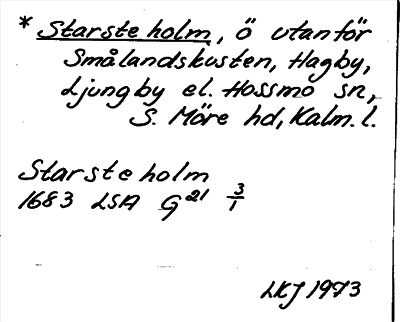 * Starsteholm, ö utanför
Smålandskusten, Hagby,
Ljungby el. Hossmo sn,
S. Möre hd, Kalm. l.
Starsteholm
1683 LSA G²¹ 3/1
LKJ 1973